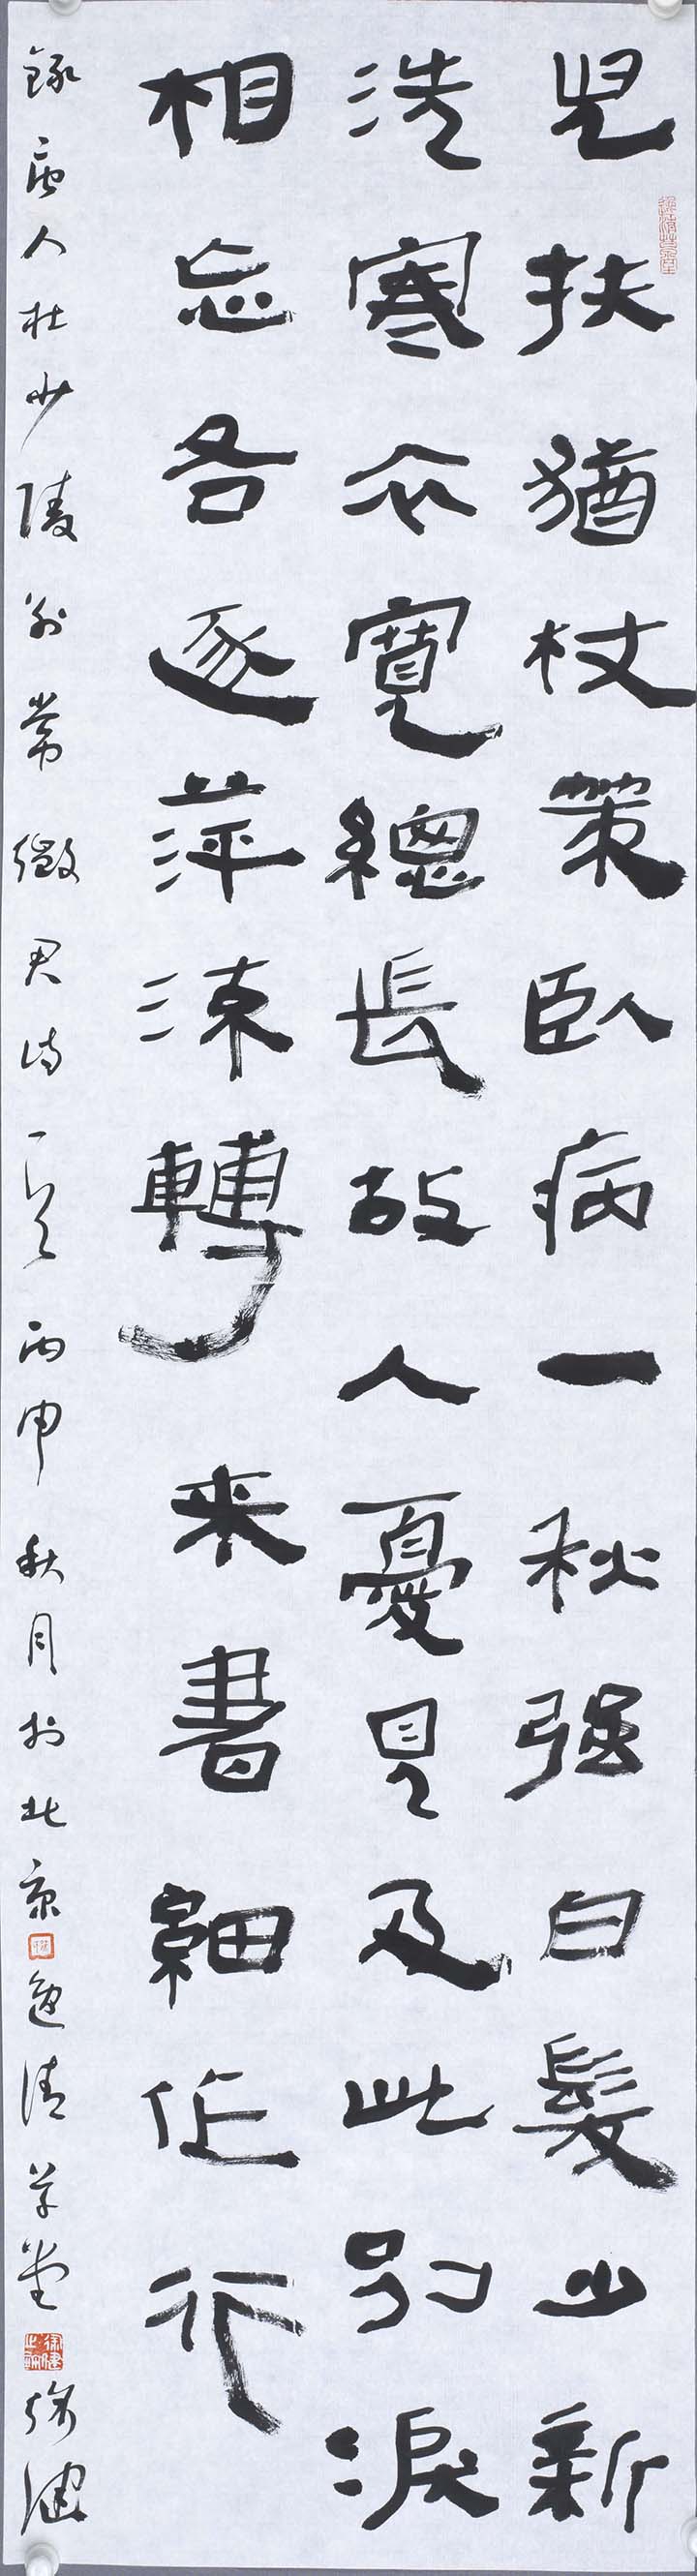 児扶猶杖策臥病一秋強白髮少新
洗寒衣寬總長故人憂見及此別淚
相忘各逐萍涑轉来書細作行
錄唐人杜少陵別常徵君詩一首丙申秋月於北京逸清草堂徐健